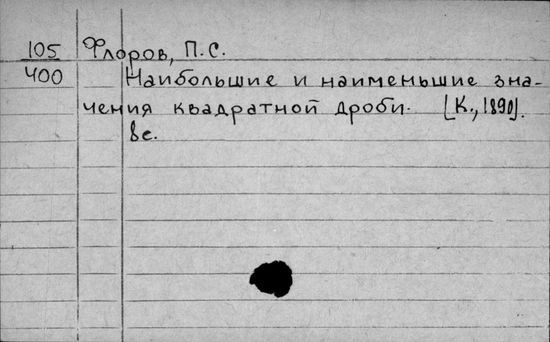 105 Флоров, П.С.
400 Наибольшие и наименьшие зна-
чения квадратной дроби. [К., 1890].
8с.